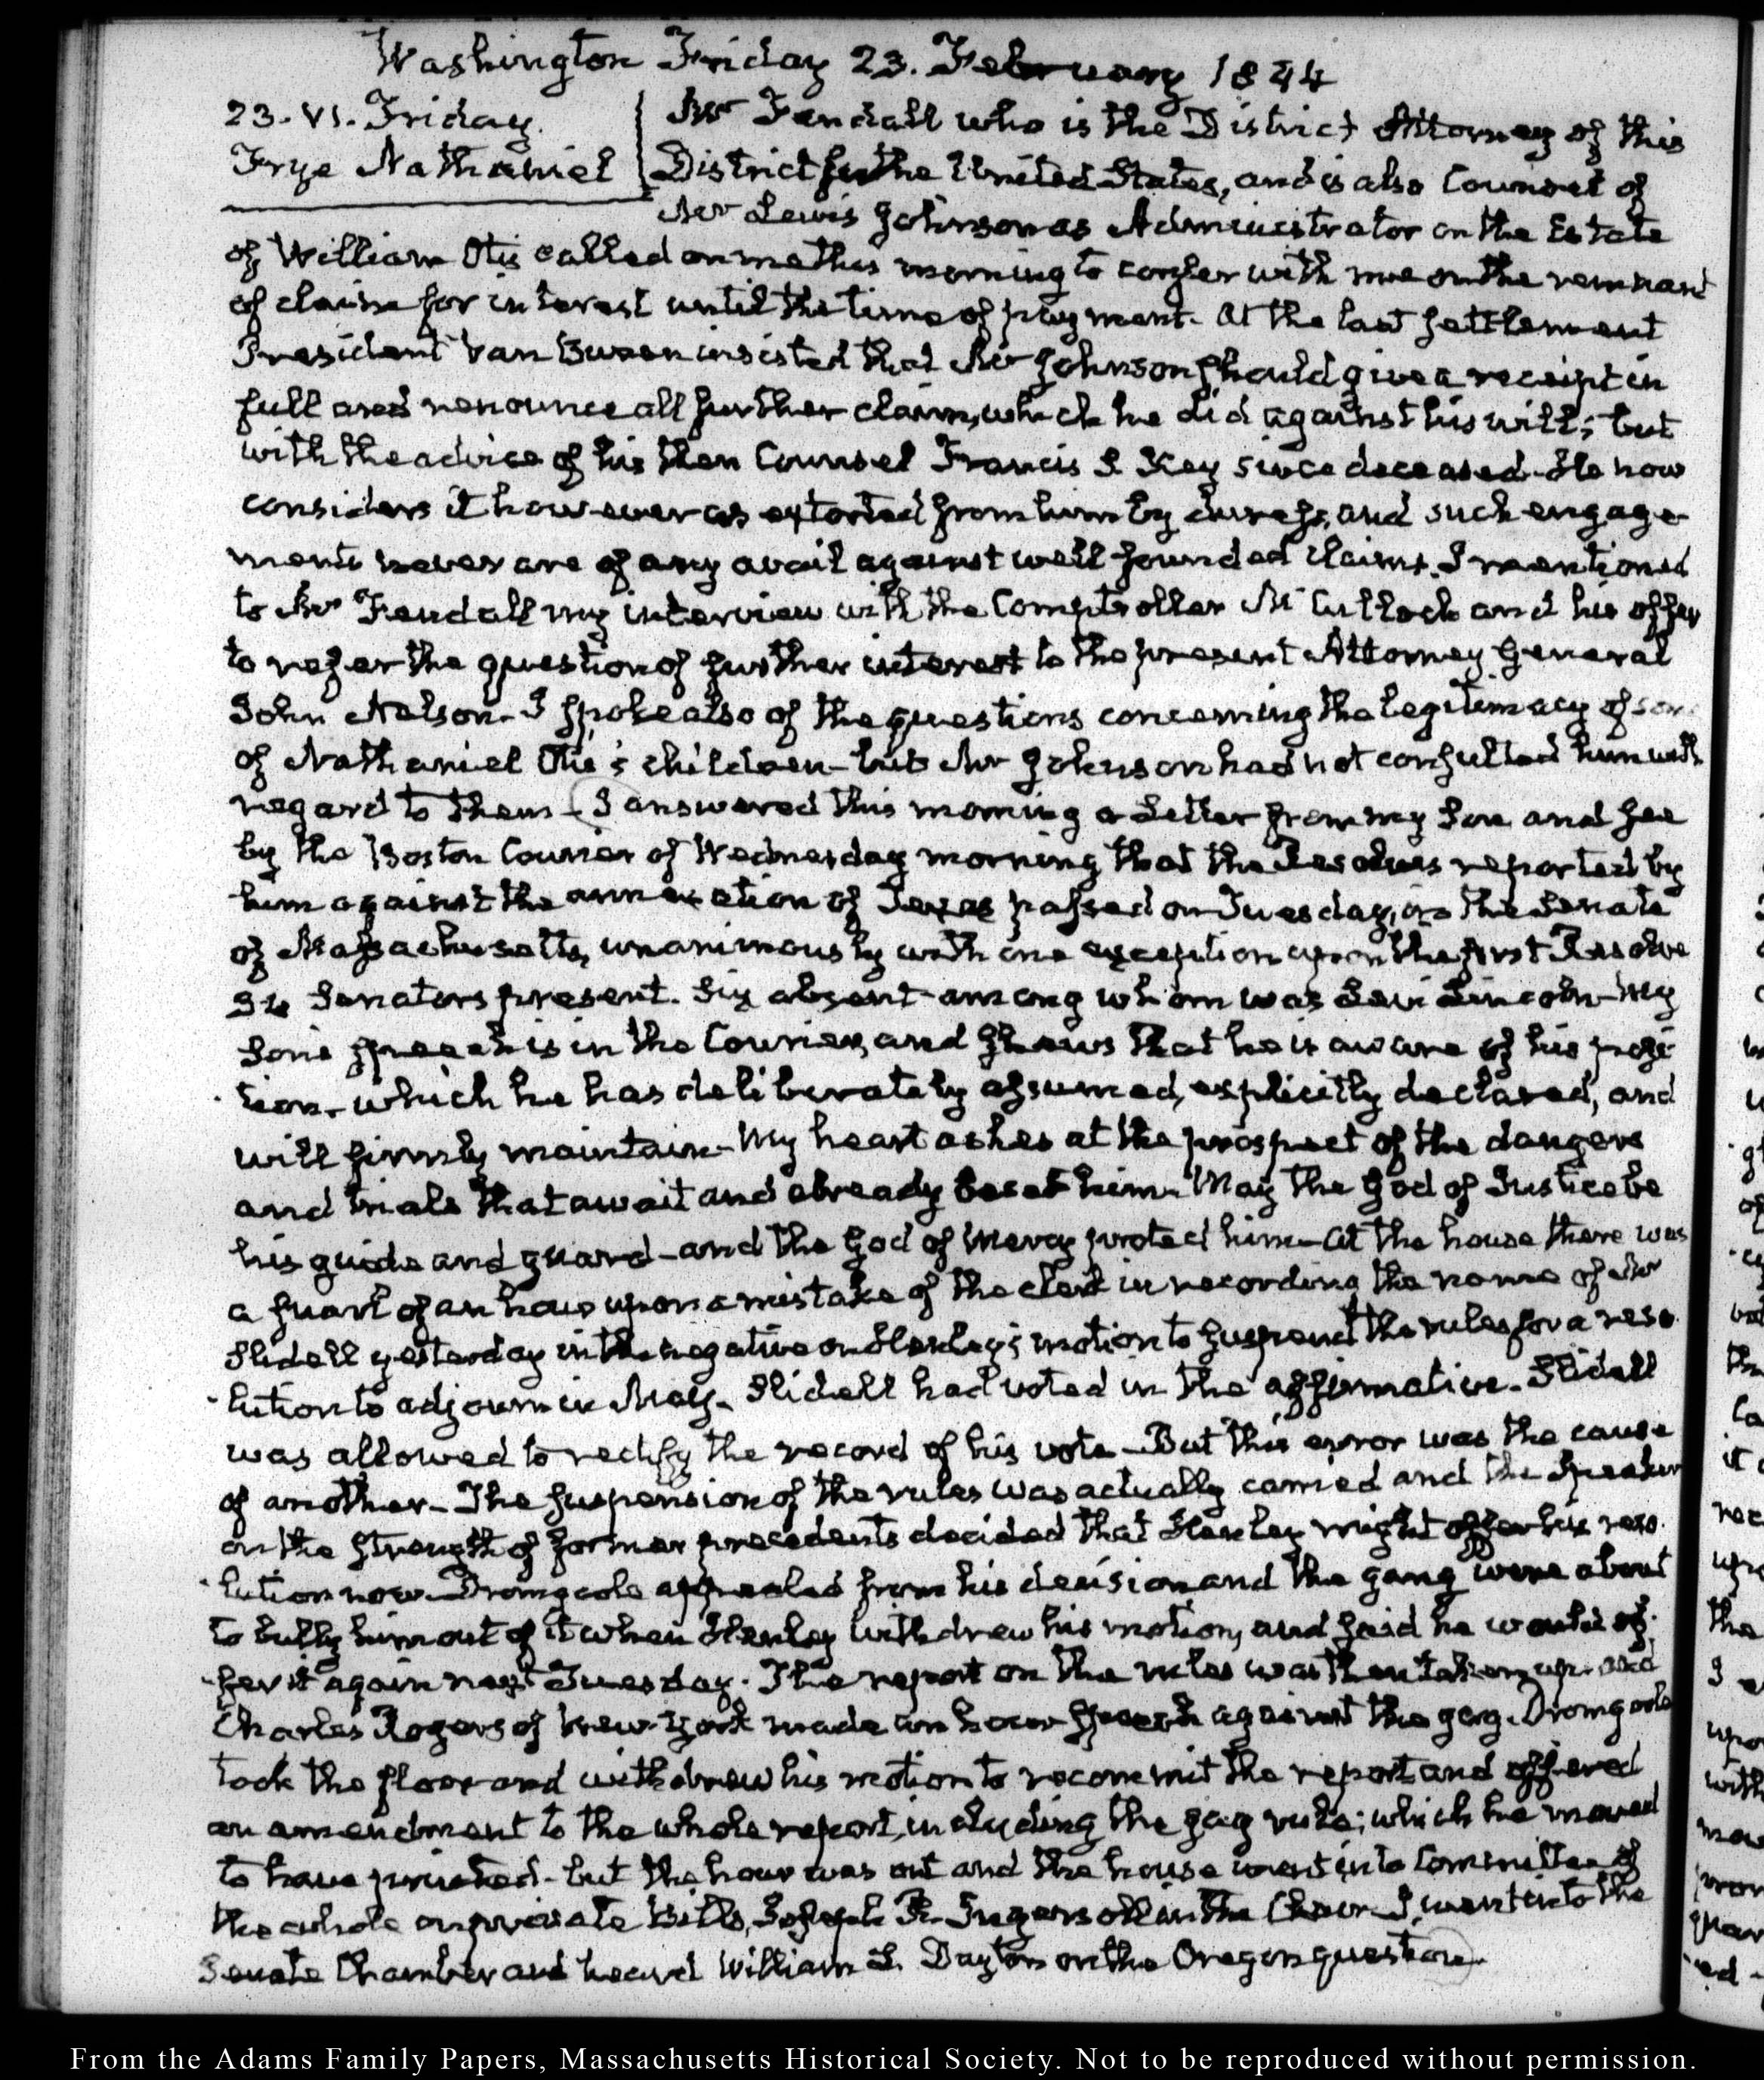 Washington Friday 23. February 1844
23. VI. Friday.
Frye Nathaniel
Mr Fendall who is the District Attorney of this
District for the United States, and is also Counsel of
Mr Lewis Johnson as Administrator on the Estate
of William Otis called on me this morning to confer with me on the remnant
of claim for interest until the time of payment. At the last settlement
President Van Buren insisted that Mr Johnson should give a receipt in
full and renounce all further claim, which he did against his will; but
with the advice of his then Counsel Francis S. Key since deceased. He now
considers it however as extorted from him by duress, and such engage-
ments never are of any avail against well founded claims. I mentioned
to Mr Fendall my interview with the Comptroller McCulloch and his offer
to refer the question of further interest to the present Attorney General
John Nelson. I spoke also of the questions concerning the legitimacy of some
of Nathaniel Otis's children - but Mr Johnson had not consulted him with
regard to them - I answered this morning a Letter from my Son and see
by the Boston Courier of Wednesday morning that the Resolves reported by
him against the annexation of Texas passed on Tuesday, in the Senate
of Massachusetts, unanimously with one exception upon the first Resolve
34 Senators present. Six absent - among whom was Levi Lincoln - My
Son's speech is in the Courier, and shews that he is aware of his posi-
tion - which he has deliberately assumed, explicitly declared, and
will firmly maintain - My heart aches at the prospect of the dangers
and trials that await and already beset him. May the God of Justice be
his guide and guard - and the God of Mercy protect him - At the house there was
a quart of an hour upon a mistake of the clerk in recording the name of Mr
Slidell yesterday in the negative on Henley's motion to suspend the rules for a reso-
lution to adjourn in May. Slidell had voted in the affirmative. Slidell
was allowed to rectify the record of his vote - But this error was the cause
of another - The suspension of the rules was actually carried and the Speaker
on the strength of former precedents decided that Henley might offer his reso-
lution now. Dromgoole appealed from his decision and the gang were about
to bully him out of it when Henley withdrew his motion, and said he would of-
fer it again next Tuesday. The report on the rules was then taken up. and
Charles Rogers of New-York made an hour speech against the gag. Dromgoole
took the floor and withdrew his motion to recommit the report and offered
an amendment to the whole report, including the gag rule; which he moved
to have printed - but the hour was out and the house went into Committee of
the whole on private Bills, Joseph R. Ingersoll in the Chair. I went into the
Senate Chamber and heard William L. Dayton on the Oregon question.
From the Adams Family Papers, Massachusetts Historical Society. Not to be reproduced without permission.